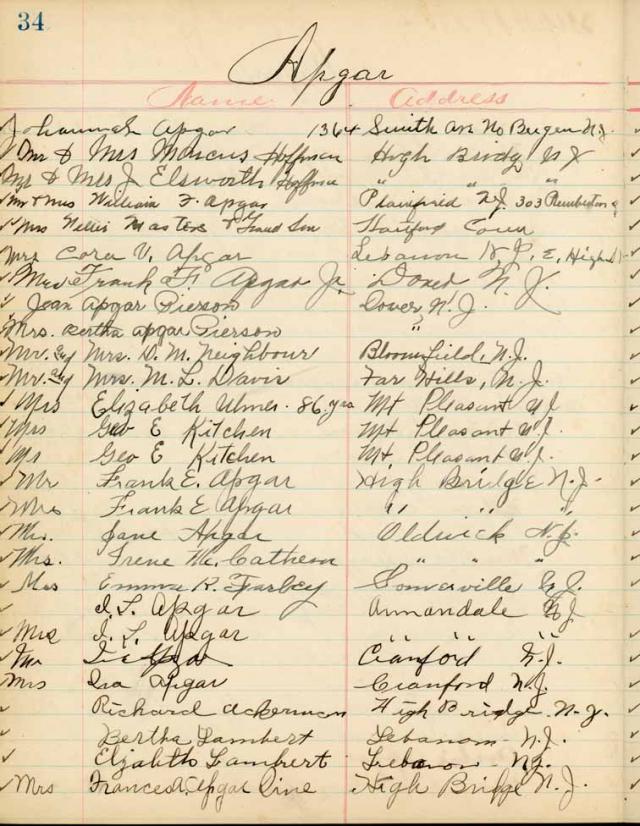 34
Apgar
Name Address
Johannah Apgar 1364 Smith Ave No Bergen N.J.
Mr & Mrs Marcus Hoffman High Bridg N J
Mr & Mrs J. Elsworth Hoffman " "
Mr & Mrs William F. Apgar Plainfield N.J. 303 Pemberton
Mrs Nellie Masters & Grand Son Hartford Conn
Mrs Cora V. Apgar Lebanon N.J.
Mrs Frank F. Apgar Jr. Dover N.J.
Jean Apgar Pierson Dover N.J.
Mrs. Bertha Apgar Pierson "
Mr. and Mrs. D. M. Neighbour Bloomfield, N.J.
Mr. and Mrs. M. L. Davis Far Hills, N.J.
Mrs Elizabeth Ulmer. 86 yrs Mt Pleasant NJ
Mrs Geo E Kitchen Mt Pleasant N.J.
Mr Geo E Kitchen Mt. Pleasant N.J.
Mr Frank E. Apgar High Bridge N.J.
Mrs Frank E Apgar " " "
Mrs. Jane Apgar Oldwick N.J.
Mrs. Irene Mc Cathern " " "
Mrs Emma R. Farley Somerville N.J.
I. S. Apgar Annandale N J
Mrs I. S. Apgar " " "
Mr Ira Apgar Cranford N.J.
Mrs Ira Apgar Cranford N.J.
Richard Ackerman High Bridge. N.J.
Bertha Lambert Lebanon N.J.
Elizabeth Lambert Lebanon N.J.
Mrs Frances A. Apgar High Bridge N.J.